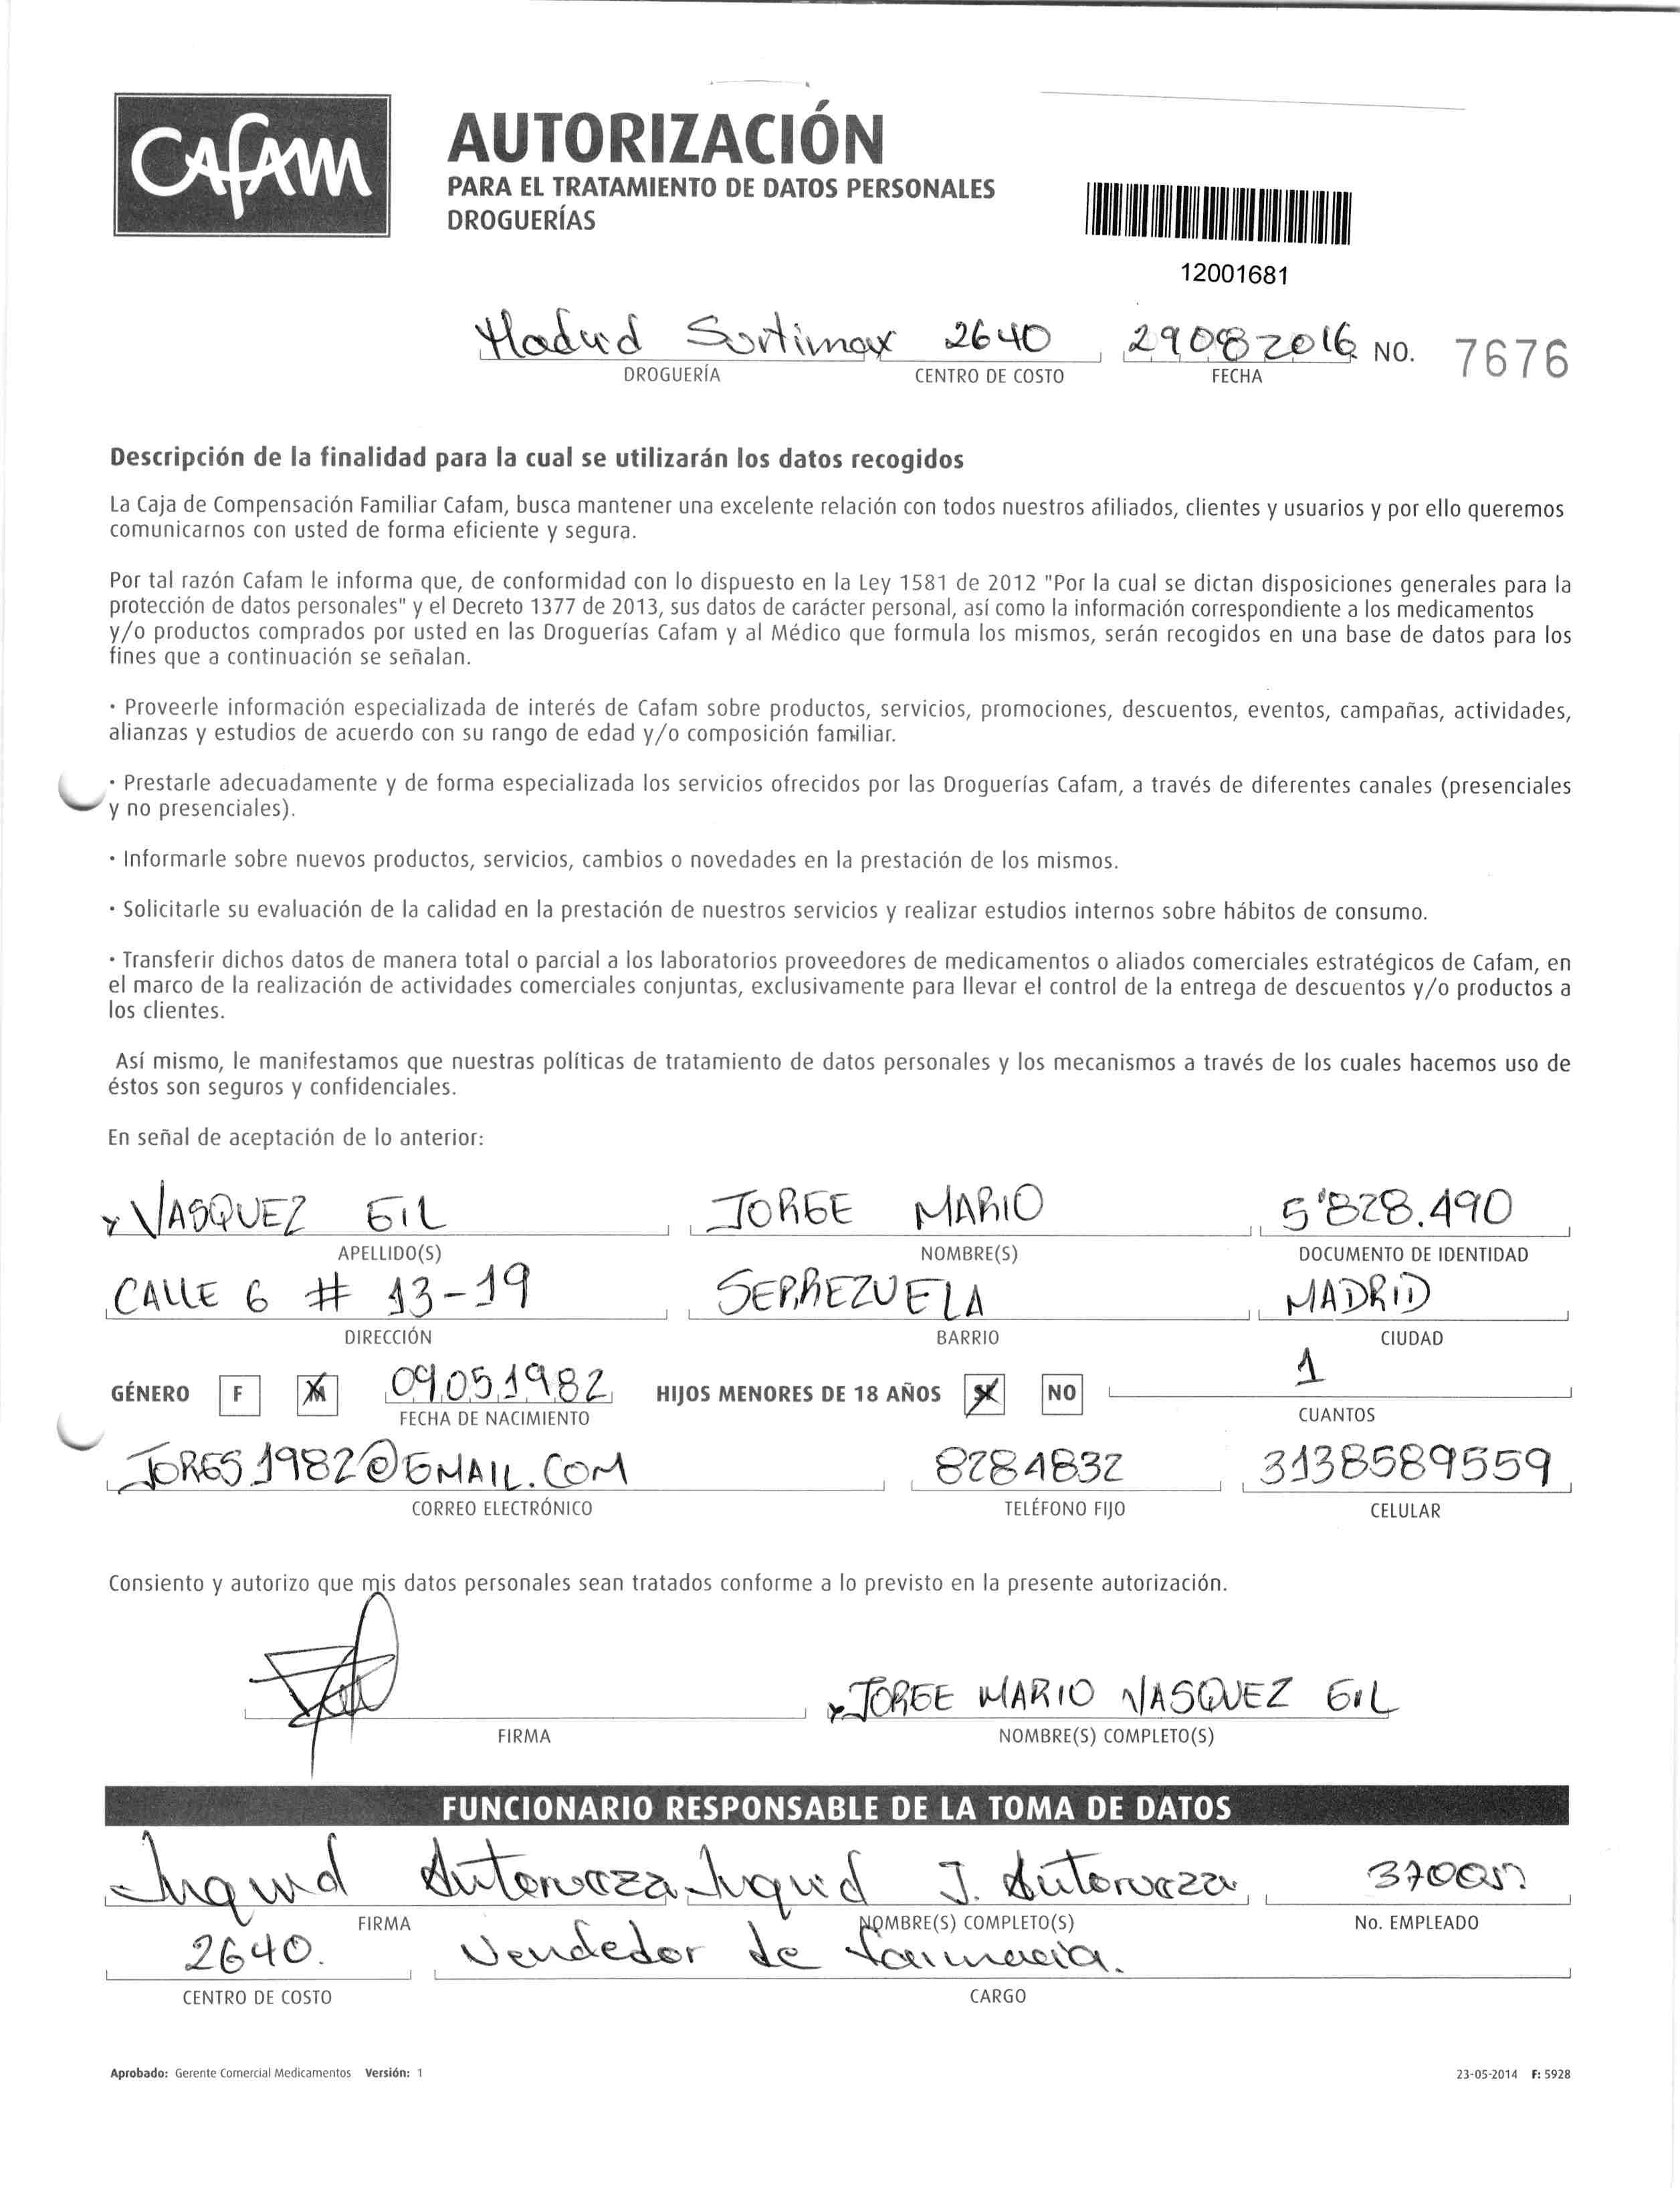 Cafam
AUTORIZACIÓN
PARA EL TRATAMIENTO DE DATOS PERSONALES
DROGUERÍAS
12001681
Madrid Sortimax 2640 29082016 NO. 7676
DROGUERÍA CENTRO DE COSTO FECHA
Descripción de la finalidad para la cual se utilizarán los datos recogidos
La Caja de Compensación Familiar Cafam, busca mantener una excelente relación con todos nuestros afiliados, clientes y usuarios y por ello queremos
comunicarnos con usted de forma eficiente y segura.
Por tal razón Cafam le informa que, de conformidad con lo dispuesto en la Ley 1581 de 2012 "Por la cual se dictan disposiciones generales para la
protección de datos personales" y el Decreto 1377 de 2013, sus datos de carácter personal, así como la información correspondiente a los medicamentos
y/o productos comprados por usted en las Droguerías Cafam y al Médico que formula los mismos, serán recogidos en una base de datos para los
fines que a continuación se señalan.
· Proveerle información especializada de interés de Cafam sobre productos, servicios, promociones, descuentos, eventos, campañas, actividades,
alianzas y estudios de acuerdo con su rango de edad y/o composición familiar.
· Prestarle adecuadamente y de forma especializada los servicios ofrecidos por las Droguerías Cafam, a través de diferentes canales (presenciales
y no presenciales).
· Informarle sobre nuevos productos, servicios, cambios o novedades en la prestación de los mismos.
· Solicitarle su evaluación de la calidad en la prestación de nuestros servicios y realizar estudios internos sobre hábitos de consumo.
· Transferir dichos datos de manera total o parcial a los laboratorios proveedores de medicamentos o aliados comerciales estratégicos de Cafam, en
el marco de la realización de actividades comerciales conjuntas, exclusivamente para llevar el control de la entrega de descuentos y/o productos a
los clientes.
Así mismo, le manifestamos que nuestras políticas de tratamiento de datos personales y los mecanismos a través de los cuales hacemos uso de
éstos son seguros y confidenciales.
En señal de aceptación de lo anterior:
VASQUEZ GIL JORGE MARIO 5'828.490
APELLIDO(S) NOMBRE(S) DOCUMENTO DE IDENTIDAD
CALLE 6 # 13-19 SERREZUELA MADRID
DIRECCIÓN BARRIO CIUDAD
GÉNERO F M 09.05.1982 HIJOS MENORES DE 18 AÑOS SI NO 1
FECHA DE NACIMIENTO CUANTOS
JORGS.1982@GMAIL.COM 8284832 3138589559
CORREO ELECTRÓNICO TELÉFONO FIJO CELULAR
Consiento y autorizo que mis datos personales sean tratados conforme a lo previsto en la presente autorización.
JORGE MARIO VASQUEZ GIL
FIRMA NOMBRE(S) COMPLETO(S)
FUNCIONARIO RESPONSABLE DE LA TOMA DE DATOS
J.
FIRMA NOMBRE(S) COMPLETO(S) No. EMPLEADO
2640. Vendedor de farmacia.
CENTRO DE COSTO CARGO
Aprobado: Gerente Comercial Medicamentos Versión: 1 23-05-2014 F: 5928